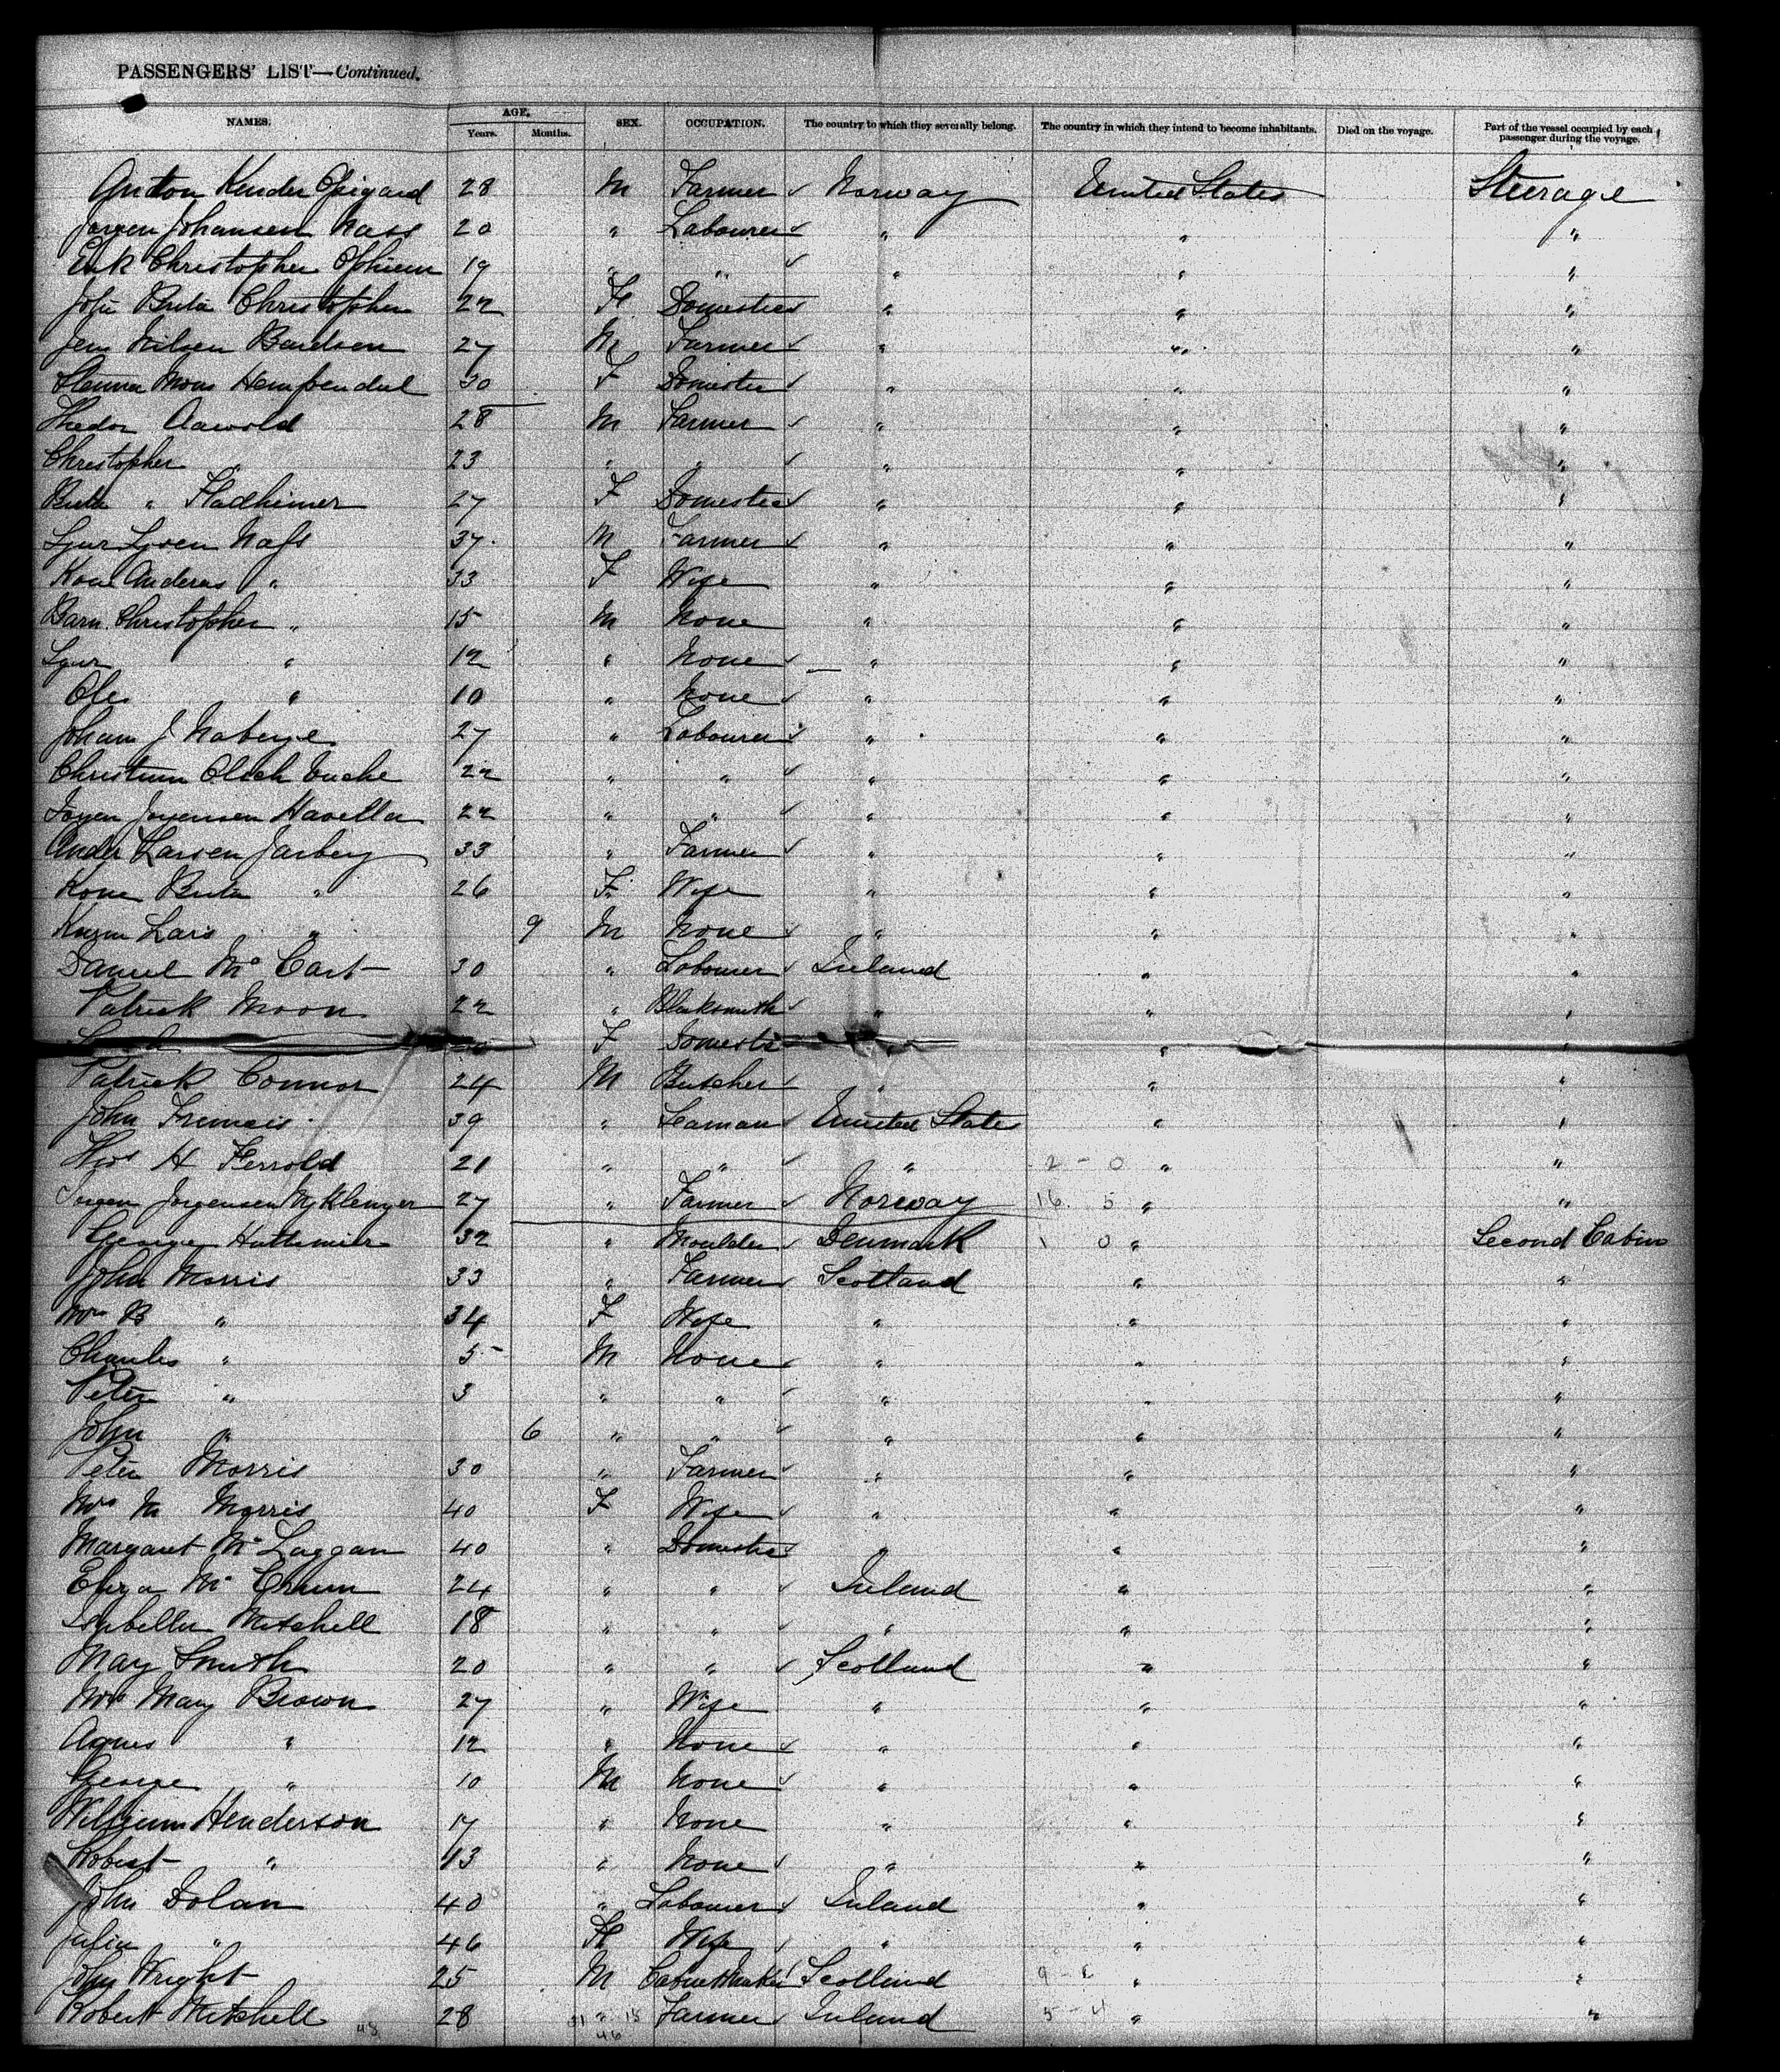 PASSENGERS' LIST—Continued.
NAMES. AGE. Years. Months. SEX. OCCUPATION. The country to which they severally belong. The country in which they intend to become inhabitants. Died on the voyage. Part of the vessel occupied by each passenger during the voyage.
Anton Kender 28 M Farmer ✓ Norway United States Steerage
Jorgen Johansen Nass 20 " Labourer ✓ " " "
Erik Christopher 19 " " ✓ " " "
Christopher 22 F Domestic ✓ " " "
Jens Nilsen Bardsen 27 M Farmer ✓ " " "
Mons Hempendal 30 F Domestic ✓ " " "
Thedor Aawold 28 M Farmer ✓ " " "
Christopher " 23 " " ✓ " " "
" Fladheimer 27 F Domestic ✓ " " "
Nass 37 M Farmer ✓ " " "
Kone Anderas " 33 F Wife " " "
Barn Christopher " 15 M None " " "
" 12 " None ✓ " " "
Ole " 10 " None ✓ " " "
Johann J Naberge 27 " Labourer ✓ " " "
22 " " ✓ " " "
Havella 22 " " ✓ " " "
Ander Larsen Jarberg 33 " Farmer ✓ " " "
Kone Brita " 26 F Wife " " "
Lars " 9 M None ✓ " " "
Daniel Mc Cart 30 " Labourer ✓ Ireland " "
Patrick Moon 22 " Blacksmith ✓ " " "
F Domestic " " "
Patrick Connor 24 M Butcher ✓ " " "
John Francis 39 " Seaman ✓ United States " "
H Ferrold 21 " " ✓ " 2 - 0 " "
Jorgensen 27 " Farmer ✓ Norway 16 5 " "
George 32 " Moulder ✓ Denmark 1 0 " Second Cabin
John Morris 33 " Farmer ✓ Scotland " "
Mrs B " 34 F Wife " " "
Charles " 5 M None ✓ " " "
Peter " 3 " " ✓ " " "
John " 6 " " ✓ " " "
Peter Morris 30 " Farmer ✓ " " "
Mrs M Morris 40 F Wife ✓ " " "
Margaret Mc Laggan 40 " Domestic ✓ " " "
Eliza Mc Crum 24 " " ✓ Ireland " "
Isabella Mitchell 18 " " ✓ " " "
May Smith 20 " " ✓ Scotland " "
Mrs Mary Brown 27 " Wife " " "
Agnes " 12 " None ✓ " " "
George " 10 M None ✓ " " "
William Henderson 17 " None " " "
Robert " 13 " None ✓ " " "
John Dolan 40 " Labourer ✓ Ireland " "
Julia " 46 F Wife ✓ " " "
John Wright 25 M Cabinet Maker ✓ Scotland " "
Robert Mitchell 28 " Farmer ✓ Ireland 5 - 4 " "
48 46